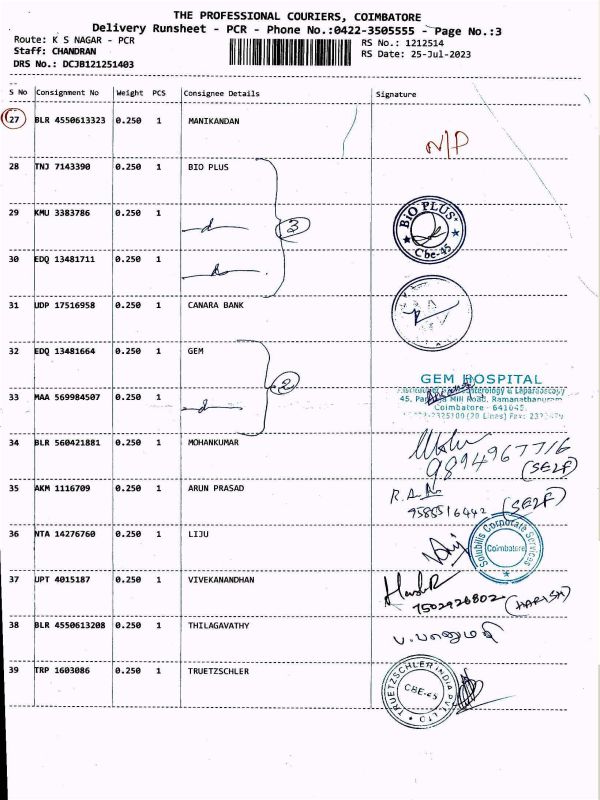 THE PROFESSIONAL COURIERS, COIMBATORE
Delivery Runsheet - PCR - Phone No.:0422-3505555 - Page No.:3
Route: K S NAGAR - PCR RS No.: 1212514
Staff: CHANDRAN RS Date: 25-Jul-2023
DRS No.: DCJB121251403
S No Consignment No Weight PCS Consignee Details Signature
27 BLR 4550613323 0.250 1 MANIKANDAN N/P
28 TNJ 7143390 0.250 1 BIO PLUS
29 KMU 3383786 0.250 1 3 BIO PLUS Cbe-45
30 EDQ 13481711 0.250 1
31 UDP 17516958 0.250 1 CANARA BANK
32 EDQ 13481664 0.250 1 GEM 2 GEM HOSPITAL
33 MAA 569984507 0.250 1
45, Mill Road, Ramanathapuram
Coimbatore - 641045
34 BLR 560421881 0.250 1 MOHANKUMAR
9894967716
(SELF)
35 AKM 1116709 0.250 1 ARUN PRASAD
9585516442 (SELF)
36 NTA 14276760 0.250 1 LIJU Solubilis Corporate Services Coimbatore
37 UPT 4015187 0.250 1 VIVEKANANDHAN
7502926802 (HARISH)
38 BLR 4550613208 0.250 1 THILAGAVATHY
39 TRP 1603086 0.250 1 TRUETZSCHLER TRUETZSCHLER INDIA PVT. LTD CBE-45